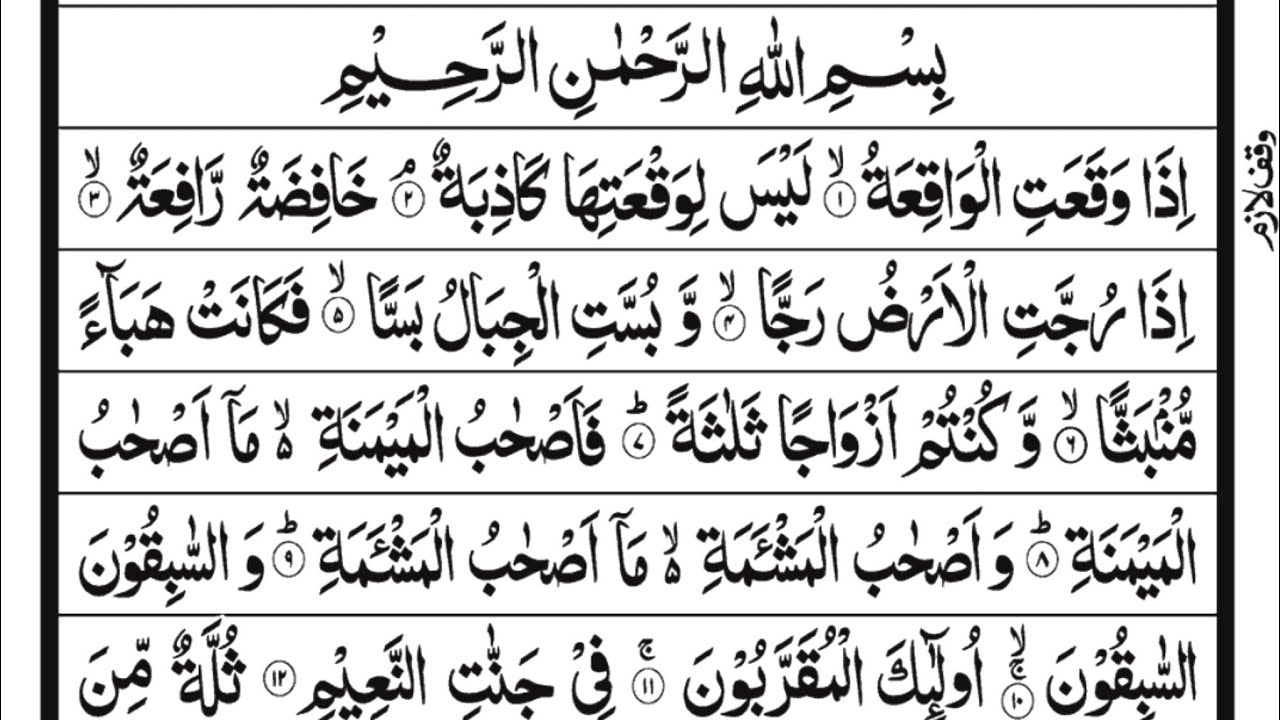 بِسْمِ اللّٰهِ الرَّحْمٰنِ الرَّحِيْمِ
اِذَا وَقَعَتِ الْوَاقِعَةُ ۙ‏﴿۱﴾ لَيْسَ لِوَقْعَتِهَا كَاذِبَةٌ ۘ‏﴿۲﴾ خَافِضَةٌ رَّافِعَةٌ ۙ‏﴿۳﴾
وقف لازم
اِذَا رُجَّتِ الْاَرْضُ رَجًّا ۙ‏﴿۴﴾ وَّ بُسَّتِ الْجِبَالُ بَسًّا ۙ‏﴿۵﴾ فَكَانَتْ هَبَآءً
مُّنْۢبَثًّا ۙ‏﴿۶﴾ وَّ كُنْتُمْ اَزْوَاجًا ثَلٰثَةً ؕ‏﴿۷﴾ فَاَصْحٰبُ الْمَيْمَنَةِ ۬ۙ مَاۤ اَصْحٰبُ
الْمَيْمَنَةِ ؕ‏﴿۸﴾ وَ اَصْحٰبُ الْمَشْـَٔمَةِ ۬ۙ مَاۤ اَصْحٰبُ الْمَشْـَٔمَةِ ؕ‏﴿۹﴾ وَ السّٰبِقُوْنَ
السّٰبِقُوْنَ ۚۙ‏﴿۱۰﴾ اُولٰٓئِكَ الْمُقَرَّبُوْنَ ۚ‏﴿۱۱﴾ فِيْ جَنّٰتِ النَّعِيْمِ ‏﴿۱۲﴾ ثُلَّةٌ مِّنَ